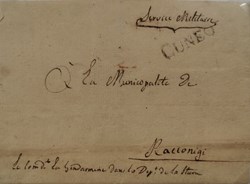 Service Militaire
CUNEO
A La Municipalité de
Racconigi
Le Com.dt La Gendarmerie dans le Dep.t de la Stura